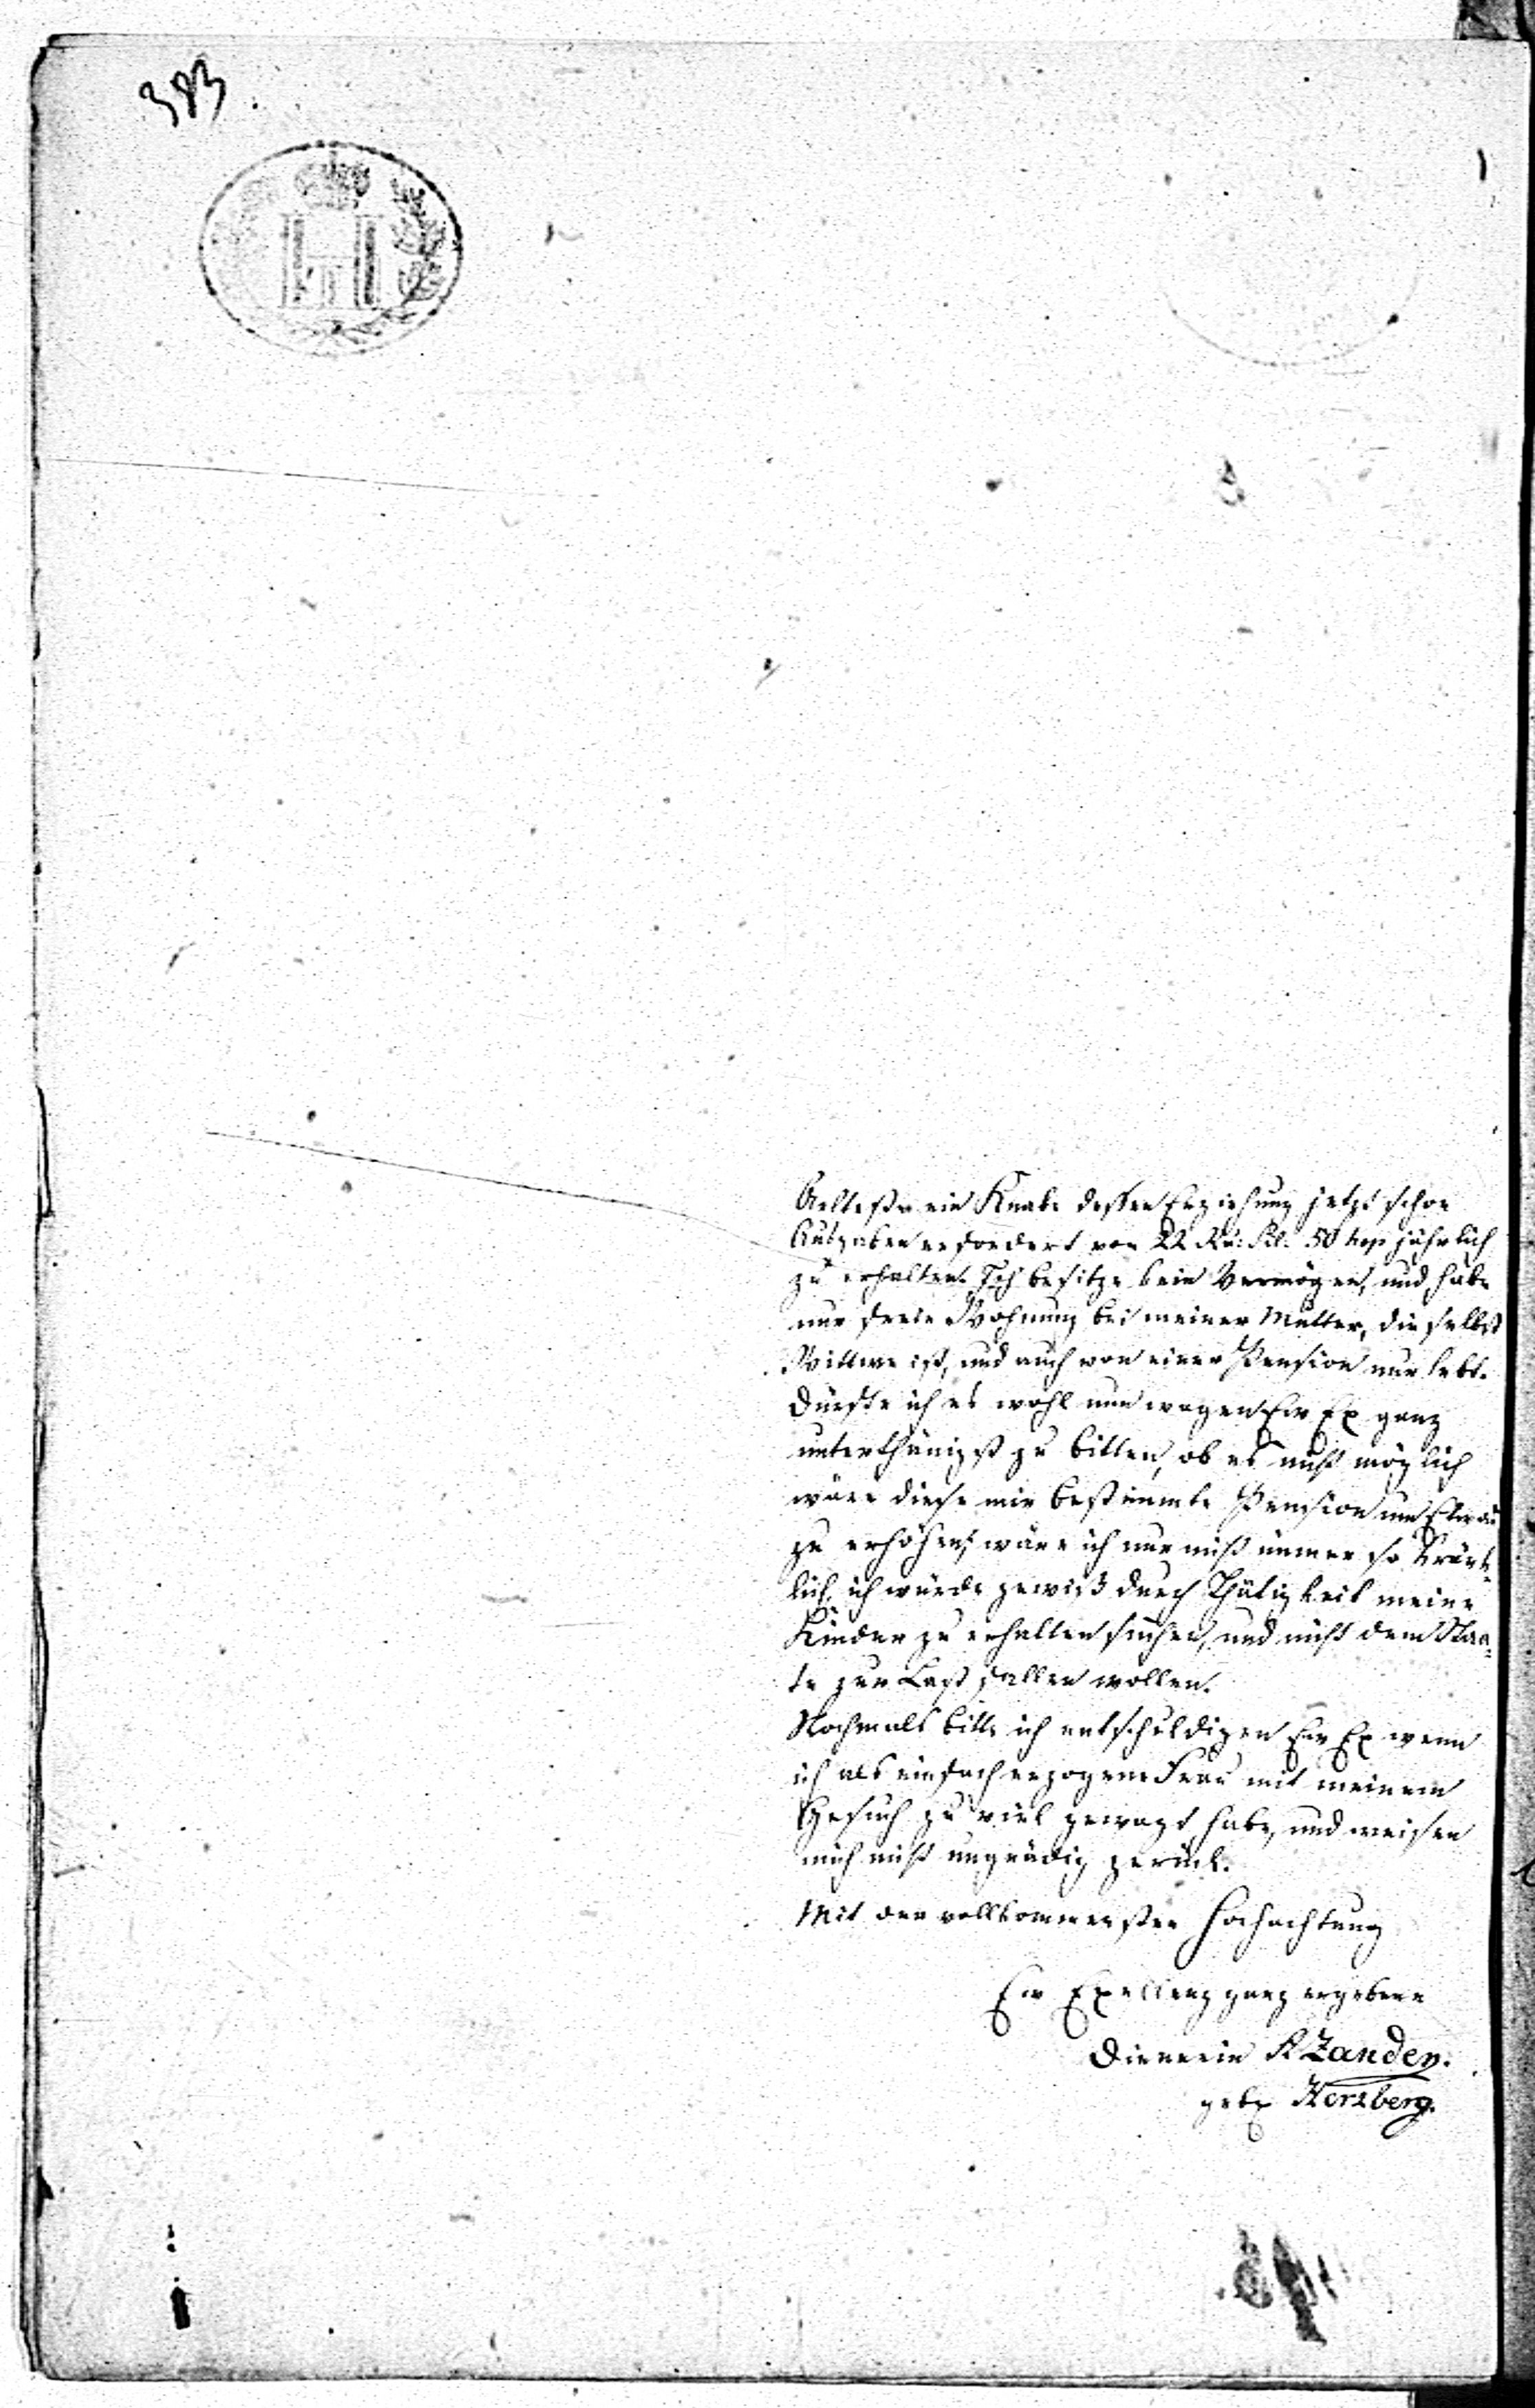 383.
Aelteste ein Knabe dessen Erziehung jetzt schon
Ausgaben erfordert von 22 Ru: Sil. 50 kop jährlich
zu erhalten. Ich besitze kein Vermögen, und habe
nur freie Wohnung bei meiner Mutter, die selbst
Wittwe ist, und auch von einer Pension nur lebt.
Dürfte ich es wohl nun wagen Ew Ex ganz
unterthänigst zu bitten, ob es nicht möglich
wäre diese mir bestimmte Pension um Etwas
zu erhöhen; wäre ich nur nicht immer so kränk-
lich, ich würde gewiß durch Thätigkeit meine
Kinder zu erhalten suchen, und nicht dem Staa-
te zur Last fallen wollen.
Nochmals bitte ich entschuldigen Ew Ex wenn
ich als einfach erzogene Frau mit meinem
Gesuch zu viel gewagt habe, und weisen
mich nicht ungnädig zurück.
Mit der vollkommensten Hochachtung
Ew Exellenz ganz ergebene
Dienerin A Zanden.
geb Herzberg.